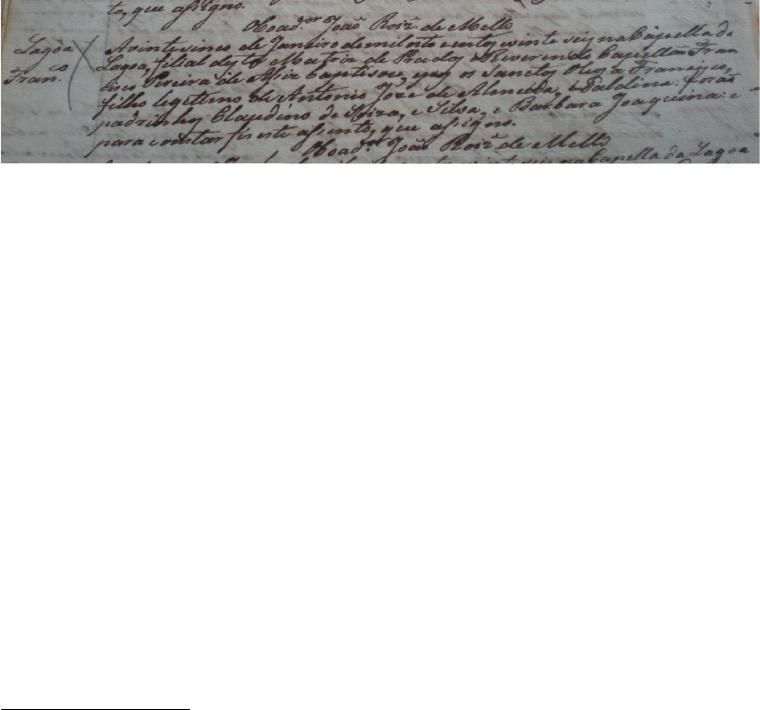 to, que assigno.
O Coad.or João Roiz' de Mello
Lagoa
Fran.co
A vinte sinco de Janeiro de mil oito centos, vinte seis na Capella da
Lagoa, filial desta Matriz de Prados o Reverendo Capellão Fran
cisco Pereira de Assiz baptisou, e pos os Sanctos Oleos a Francisco,
filho legitimo de Antonio Joze de Almeida, e Baldina: forão
padrinhos Claudino de Soiza, e Silva, e Barbara Joaquina: e
para constar fis este assento, que assigno.
O Coad.or João Roiz' de Mello
na Capella da Lagoa